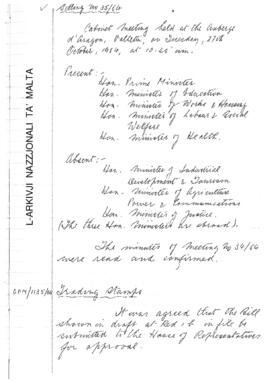 Sitting No 35/64
Cabinet Meeting held at the Auberge
d'Aragon, Valletta, on Tuesday, 27th
October, 1964, at 10.25 a.m.
Present:-
Hon. Prime Minister
Hon. Minister of Education
Hon. Minister of Works & Housing
Hon. Minister of Labour & Social
Welfare
Hon. Minister of Health.
Absent:-
Hon. Minister of Industrial
Development & Tourism
Hon. Minister of Agriculture
Power & Communications
Hon. Minister of Justice.
(The three Hon. Ministers are abroad).
The minutes of Meeting No 34/64
were read and confirmed.
OPM/1135/64 Trading Stamps
It was agreed that the Bill
shown in draft at Red 1b in file be
submitted to the House of Representatives
for approval.
L-ARKIVJI NAZZJONALI TA' MALTA